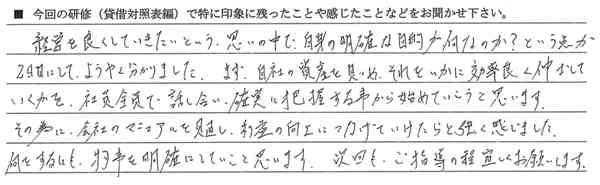 ■ 今回の研修（貸借対照表編）で特に印象に残ったことや感じたことなどをお聞かせ下さい。
経営を良くしていきたいという、思いの中で、自身の明確な目的が何なのか?という点が
2日目にして、ようやく分かりました。まず、自社の資産を見つめ、それをいかに効率良く伸ばして
いくかを、社員全員で話し合い、確実に把握する事から始めていこうと思います。
その為に、会社のマニュアルを見直し、利益の向上につなげていけたらと強く感じました。
何をするにも、物事を明確にしていこと思います。次回も、ご指導の程宜しくお願いします。